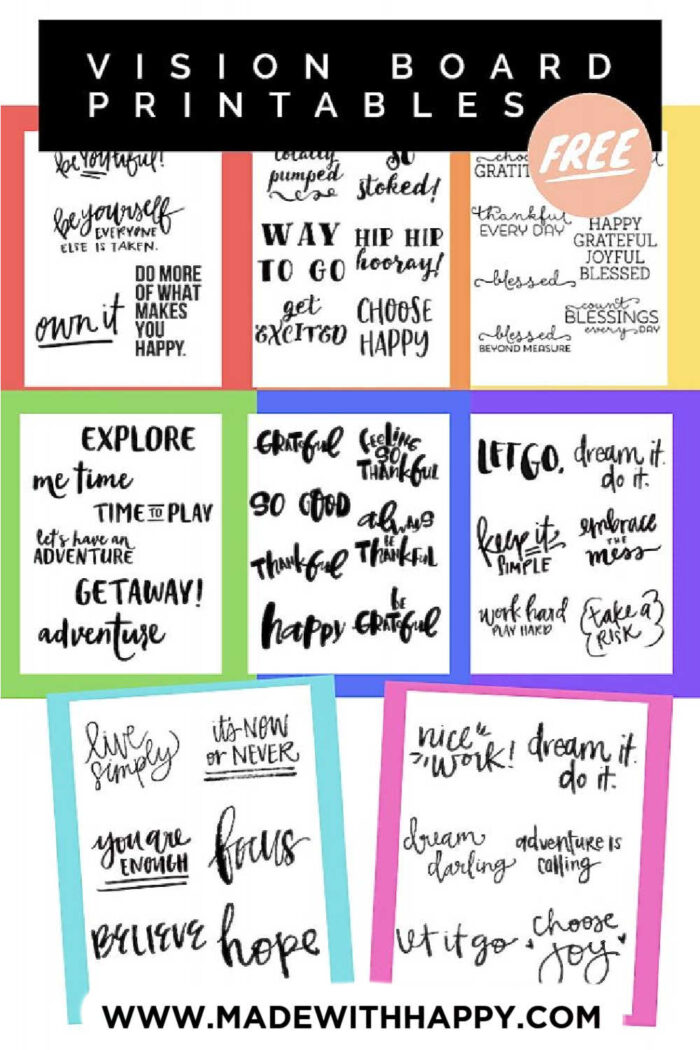 VISION BOARD
PRINTABLES
FREE
be YOUtiful!
be yourself
EVERYONE
ELSE IS TAKEN.
own it
DO MORE
OF WHAT
MAKES
YOU
HAPPY.
totally
pumped
SO
stoked!
WAY
TO GO
HIP HIP
hooray!
get
EXCITED
CHOOSE
HAPPY
thankful
EVERY DAY
HAPPY
GRATEFUL
JOYFUL
BLESSED
blessed
count
BLESSINGS
every DAY
blessed
BEYOND MEASURE
EXPLORE
me time
TIME TO PLAY
let's have an
ADVENTURE
GETAWAY!
adventure
GRATEFUL
FEELING
SO
THANKFUL
SO GOOD
always
BE
THANKFUL
THANKFUL
happy
BE
GRATEFUL
LET GO.
dream it.
do it.
keep it
SIMPLE
embrace
THE
mess
work hard
PLAY HARD
{take a}
{RISK}
live
simply
it's NOW
or NEVER
you are
ENOUGH
focus
BELIEVE
hope
nice
WORK!
dream it.
do it.
dream
darling
adventure is
calling
let it go
choose
JOY
WWW.MADEWITHHAPPY.COM